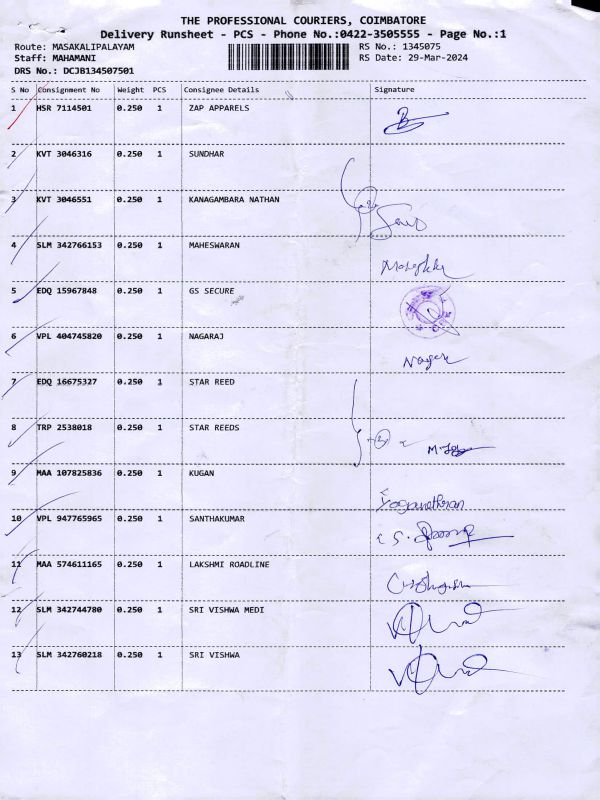 THE PROFESSIONAL COURIERS, COIMBATORE
Delivery Runsheet - PCS - Phone No.:0422-3505555 - Page No.:1
Route: MASAKALIPALAYAM RS No.: 1345075
Staff: MAHAMANI RS Date: 29-Mar-2024
DRS No.: DCJB134507501
S No Consignment No Weight PCS Consignee Details Signature
1 HSR 7114501 0.250 1 ZAP APPARELS
2 KVT 3046316 0.250 1 SUNDHAR
3 KVT 3046551 0.250 1 KANAGAMBARA NATHAN
4 SLM 342766153 0.250 1 MAHESWARAN
5 EDQ 15967848 0.250 1 GS SECURE
6 VPL 404745820 0.250 1 NAGARAJ
7 EDQ 16675327 0.250 1 STAR REED
8 TRP 2538018 0.250 1 STAR REEDS
9 MAA 107825836 0.250 1 KUGAN
10 VPL 947765965 0.250 1 SANTHAKUMAR
11 MAA 574611165 0.250 1 LAKSHMI ROADLINE
12 SLM 342744780 0.250 1 SRI VISHWA MEDI
13 SLM 342760218 0.250 1 SRI VISHWA